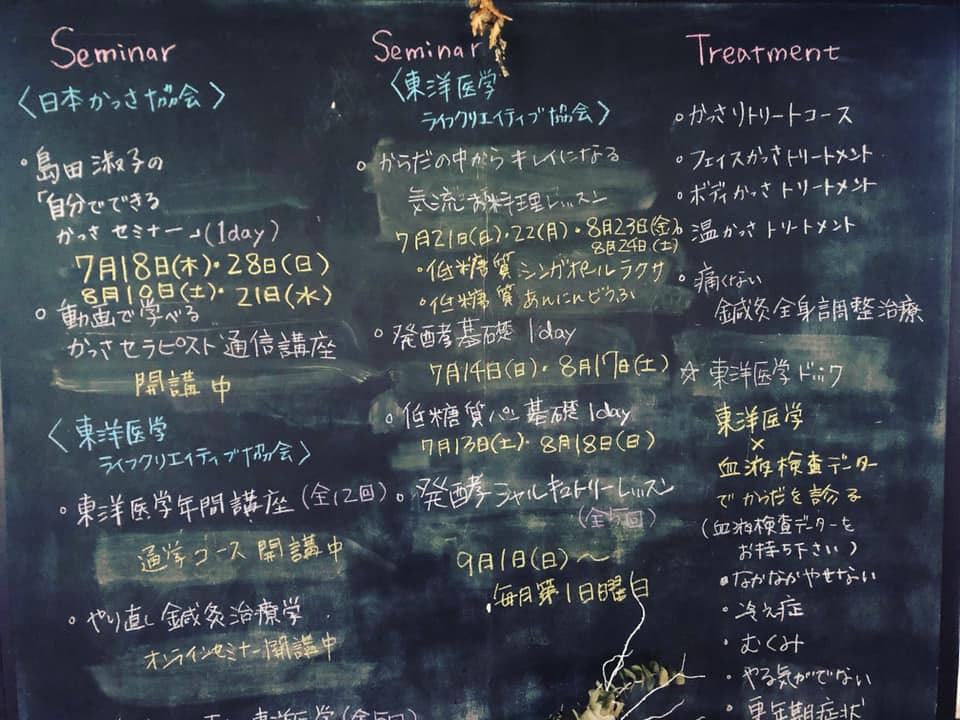 Seminar
〈日本かっさ協会〉
・島田淑子の
「自分でできる
かっさセミナー」(1day)
7月18日(木)・28日(日)
8月10日(土)・21日(水)
・動画で学べる
かっさセラピスト通信講座
開講中
〈東洋医学
ライフクリエイティブ協会〉
・東洋医学年間講座(全12回)
通学コース開講中
・やり直し鍼灸治療学
オンラインセミナー開講中
東洋医学(全5回)
Seminar
〈東洋医学
ライフクリエイティブ協会〉
・からだの中からキレイになる
気流お料理レッスン
7月21日(日)・22(月)・8月23日(金)
8月24日(土)
・低糖質シンガポールラクサ
・低糖質あんにんどうふ
・発酵基礎1day
7月14日(日)・8月17日(土)
・低糖質パン基礎1day
7月13日(土)・8月18日(日)
・発酵シャルキュトリーレッスン
(全5回)
9月1日(日)〜
毎月第1日曜日
Treatment
・かっさリトリートコース
・フェイスかっさトリートメント
・ボディかっさトリートメント
・温かっさトリートメント
・痛くない
鍼灸全身調整治療
☆東洋医学ドック
東洋医学
×
血液検査データー
でからだを診る
(血液検査データーを
お持ち下さい)
・なかなかやせない
・冷え症
・むくみ
・やる気がでない
・更年期症状